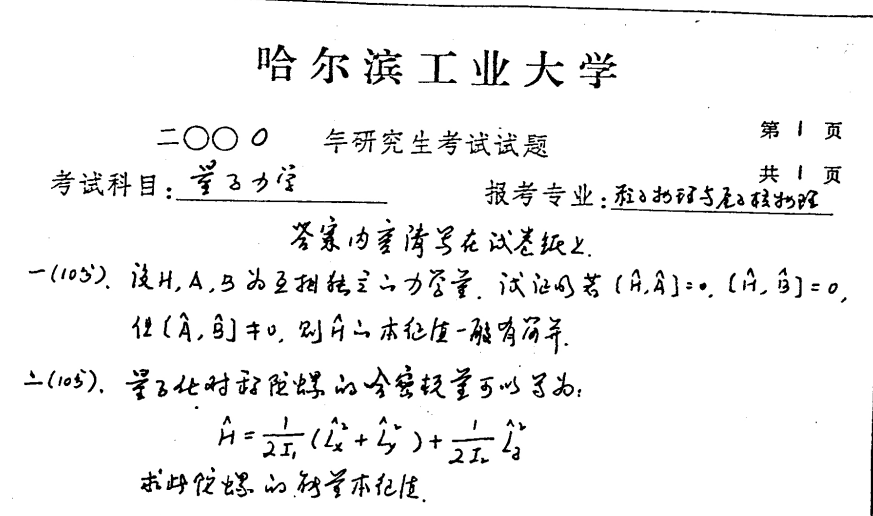 哈尔滨工业大学
二〇〇0 年研究生考试试题
第 1 页
共 1 页
考试科目: 量子力学
报考专业: 粒子物理与原子核物理
答案内容请写在试卷纸上.
一(10分). 设H, A, B 为 力学量. 试证明若 [Ĥ,Â]=0, [Ĥ, B̂]=0,
但[Â, B̂]≠0, 则Ĥ的本征值一般有简并.
二(10分). 量子化对称陀螺的哈密顿量可以写为:
Ĥ = 1/2I₁ (L̂x² + L̂y²) + 1/2I₂ L̂z²
求此陀螺的能量本征值.